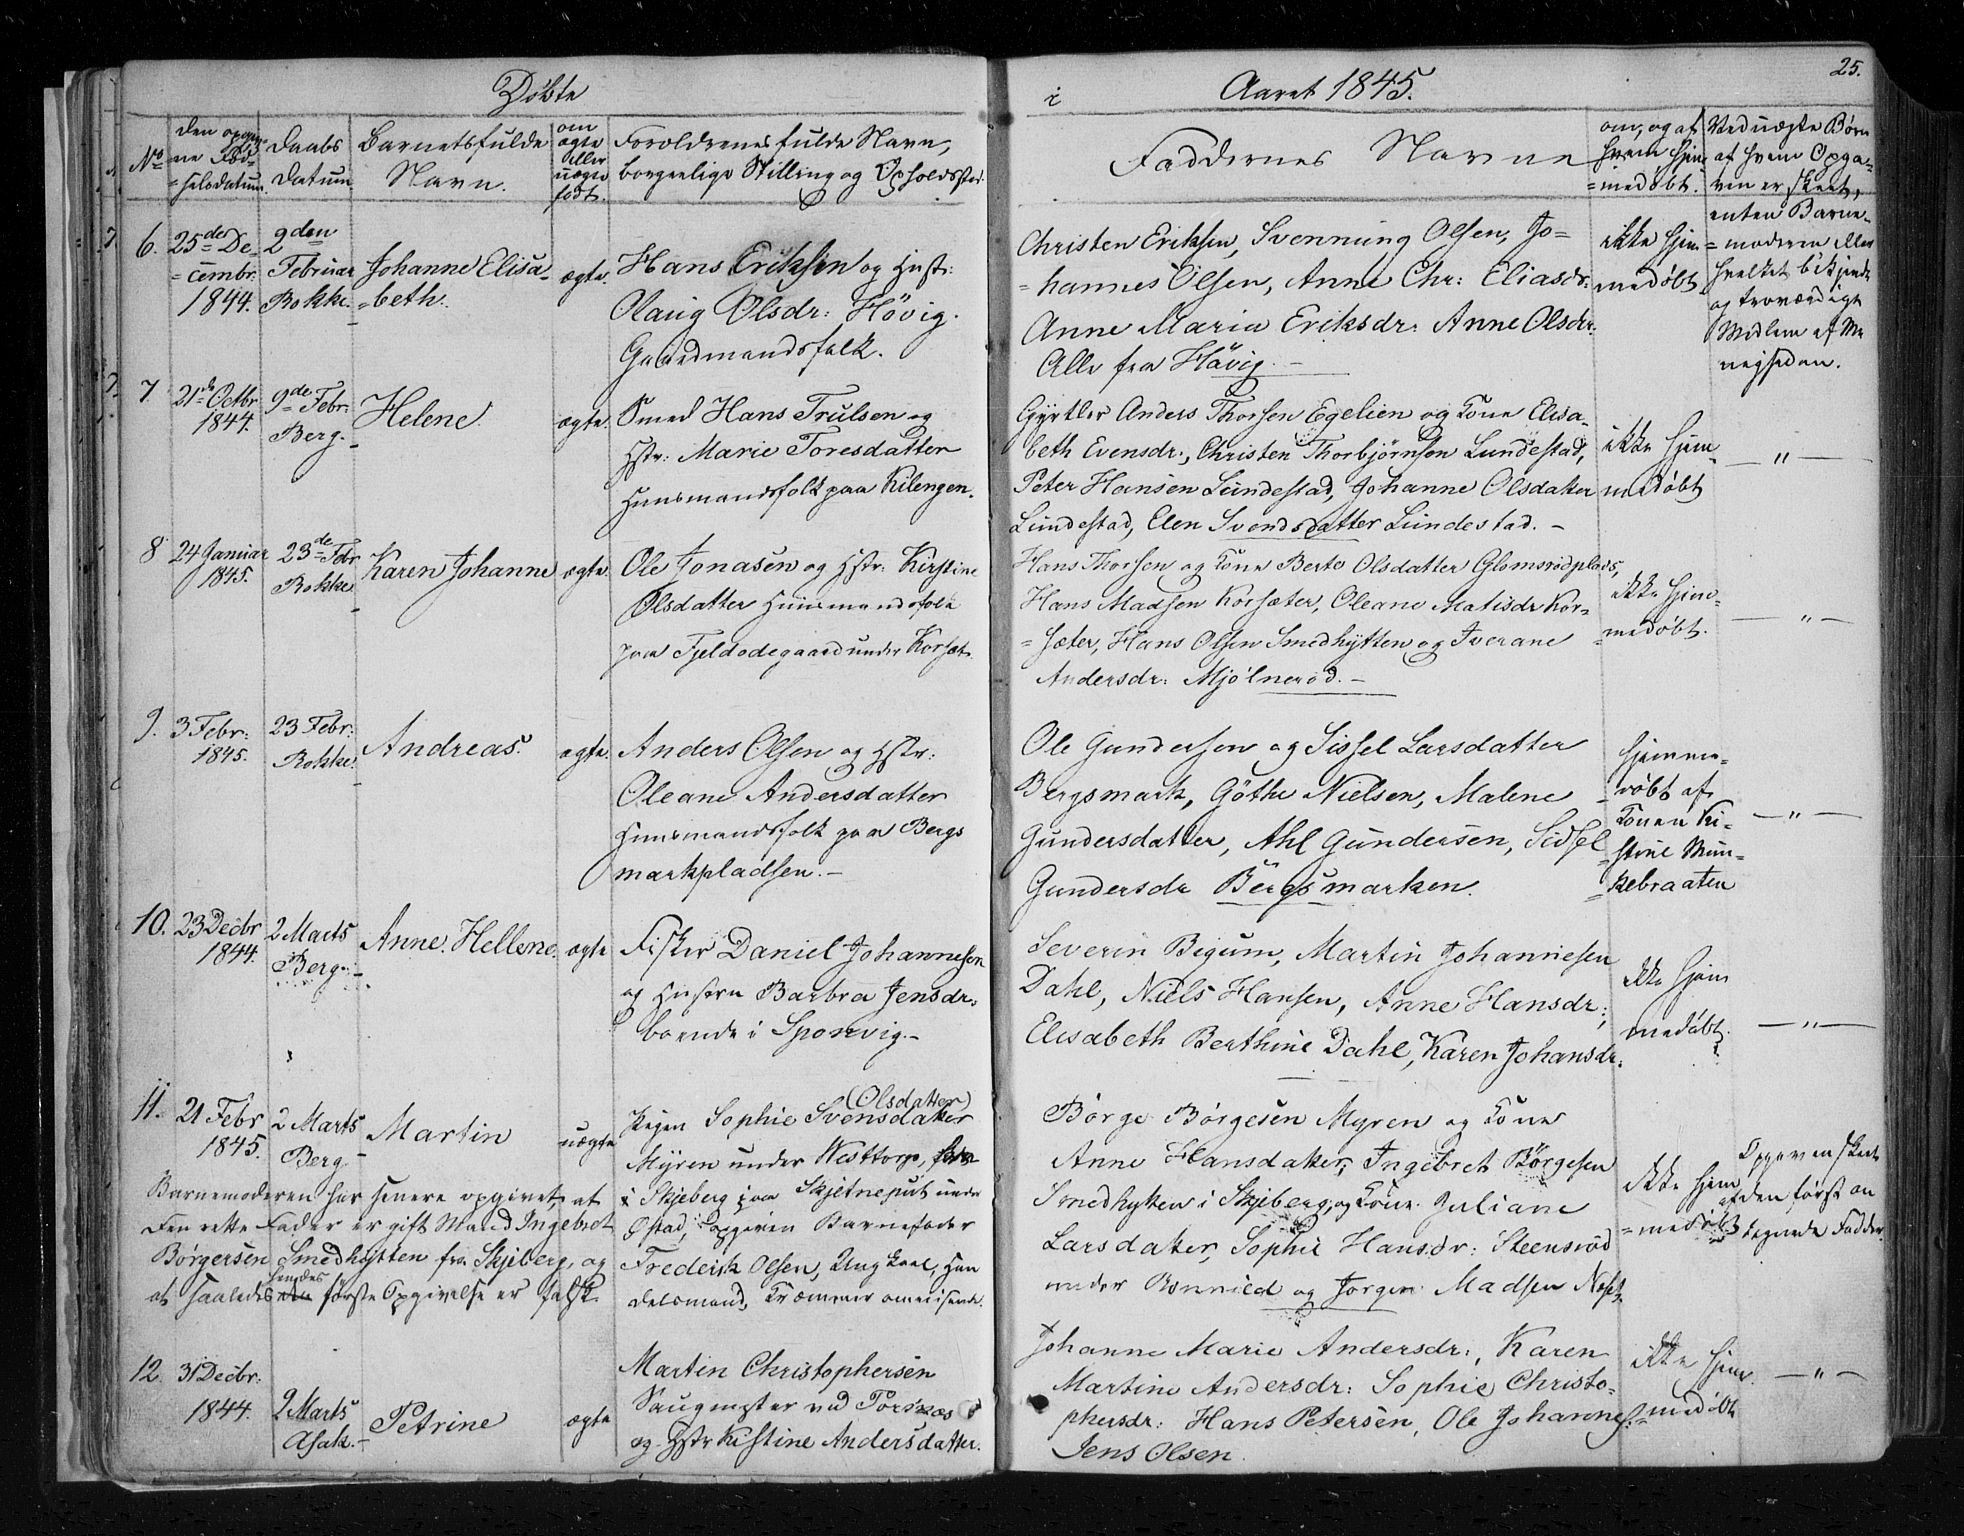 Døbte
i Aaret 1845.
25.
No
Daabs Datum
Barnets fulde Navn.
om ægte eller uægte født.
Forældrenes fulde Navn, borgerlige Stilling og Opholdssted.
Faddernes Navne
om, og af hvem hjemmedøbt.
Ved uægte Børn af hvem Opgaven er skeet, enten Barnemoderen eller
og troværdigt Medlem af Menigheden.
6. 25de December 1844.
2den Februar Rokke.
Johanne Elisabeth.
ægte.
Hans Eriksen og Hustr:
Olaug Olsdr: Hövig.
Gaardmandsfolk.
Christen Eriksen, Svenning Olsen, Jo=
=hannes Olsen, Anne Chr: Eliasdr:
Anne Maria Eriksdr: Anne Olsdr:
Alle fra Hövig.
ikke hjemmedøbt
7 21de Octbr 1844.
9de Febr: Berg.
Helene.
ægte.
Smed Hans Trulsen og
Hstr: Marie Toresdatter
Huusmandsfolk paa Kilengen.
Gjyrtler Anders Thorsen Egelien og Kone Elisa-
beth Evensdr:, Christen Thorbjörnsen Lundestad,
Peter Hansen Lundestad, Johanne Olsdatter
Lundestad, Elen Svendsdatter Lundestad. -
ikke hjemmedøbt
— „ —
8 24 Januar 1845.
23de Febr Rokke
Karen Johanne
ægte.
Ole Jonasen og Hstr: Kirstine
Olsdatter Huusmandsfolk
paa Fjeldødegaard under Korsæt.
Hans Thorsen og Kone Berte Olsdatter Glomsrødplads,
Hans Madsen Korsæter, Oleane Matisdr Kor-
=sæter, Hans Olsen Smedhytten og Iverane
Andersdr: Mjölneröd. -
ikke hjemmedøbt.
— „ —
9. 3 Febr: 1845.
23 Febr: Rokke.
Andreas.
ægte.
Anders Olsen og Hstr:
Oleane Andersdatter
Huusmandsfolk paa Bergs
markpladsen. -
Ole Gundersen og Sissel Larsdatter
Bergsmark, Göthe Nielsen, Malene
Gundersdatter, Ahl Gundersen, Sidsel
Gundersdr Bergsmarken.
hjemmedøbt af Konen Kistine Munkebraaten
— „ —
10. 23 Decbr 1844.
2 Marts Berg.
Anne Hellene.
ægte
Fisker Daniel Johannesen
og Hustru Barbra Jensdr:
boende i Sponvig. -
Severin Begum, Martin Johannesen
Dahl, Niels Hansen, Anne Hansdr;
Elisabeth Berthine Dahl, Karen Johansdr.
ikke hjemmedøbt.
— „ —
11. 21 Febr 1845.
2 Marts Berg
Martin
uægte
(Olsdatter)
Pigen Sophie Svensdatter
Myren under Westtorp,
i Skjeberg paa Skjetneput under
Østad, opgiven Barnefader
Frederik Olsen, Ungkarl, Han
delsmand, Kræmmer omreisende.
Barnemoderen har senere opgivet, at
den rette Fader er gift Mand Ingebret
Börgersen Smedhytten fra Skjeberg, og
at saaledes hendes første Opgivelse er falsk.
Börge Börgesen Myren og Kone
Anne Hansdatter, Ingebret Börgesen
Smedhytten i Skjeberg, og Kone Juliane
Larsdatter, Sophie Hansdr: Steensröd
under Bönnild og Jörgen Madsen
ikke hjemmedøbt
Opgaven skeet af den först an tegnede Fadder.
12. 31 Decbr: 1844.
2 Marts Asak. -
Petrine
ægte
Martin Christophersen
Saugmester ved Torsnæs
og Hstr Kistine Andersdatter.
Johanne Marie Andersdr:, Karen
Martine Andersdr: Sophie Christo-
phersdr: Hans Petersen, Ole Johannes.
Jens Olsen.
ikke hjemmedøbt
— „ —